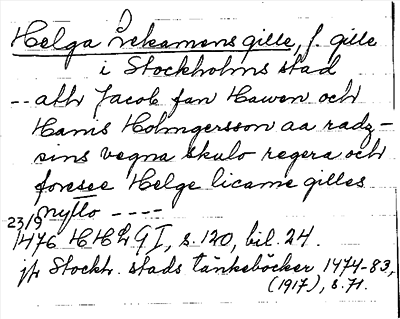 Helga Lekamens gille, f. gille
i Stockholms stad
-- ath Jacob fan Hawen och
Hanis Holmgersson aa radz-
sins vegna skulo regera och
foresee Helge licame gilles
nytto ----
23/9
1476 HHL G I, s. 120, bil. 24.
jfr Stockh. stads tänkeböcker 1474-83,
(1917), s. 71.